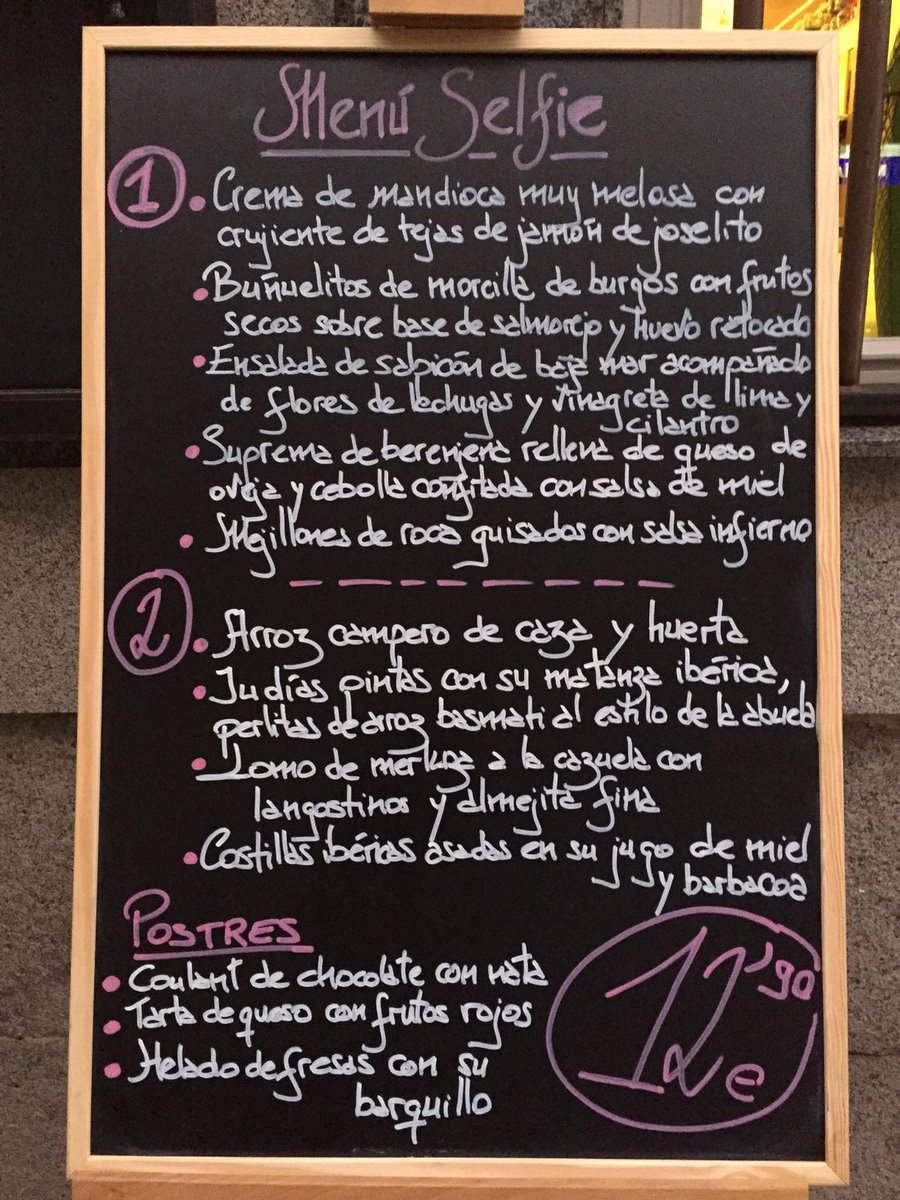 Menú Selfie
1 • Crema de mandioca muy melosa con
crujiente de tejas de jamón de joselito
• Buñuelitos de morcilla de burgos con frutos
secos sobre base de salmorejo y huevo retocado
• Ensalada de salpicón de baja mar acompañado
de flores de lechugas y vinagreta de llima y
cilantro
• Suprema de berenjena rellena de queso de
oveja y cebolla confitada con salsa de miel
• Mejillones de roca guisados con salsa infierno
2 • Arroz campero de caza y huerta
• Judías pintas con su matanza ibérica,
perlitas de arroz basmati al estilo de la abuela
• Lomo de merluza a la cazuela con
langostinos y almejita fina
• Costillas ibéricas asadas en su jugo de miel
y barbacoa
POSTRES
• Coulant de chocolate con nata
• Tarta de queso con frutos rojos
• Helado de fresas con su
barquillo
12'90 e